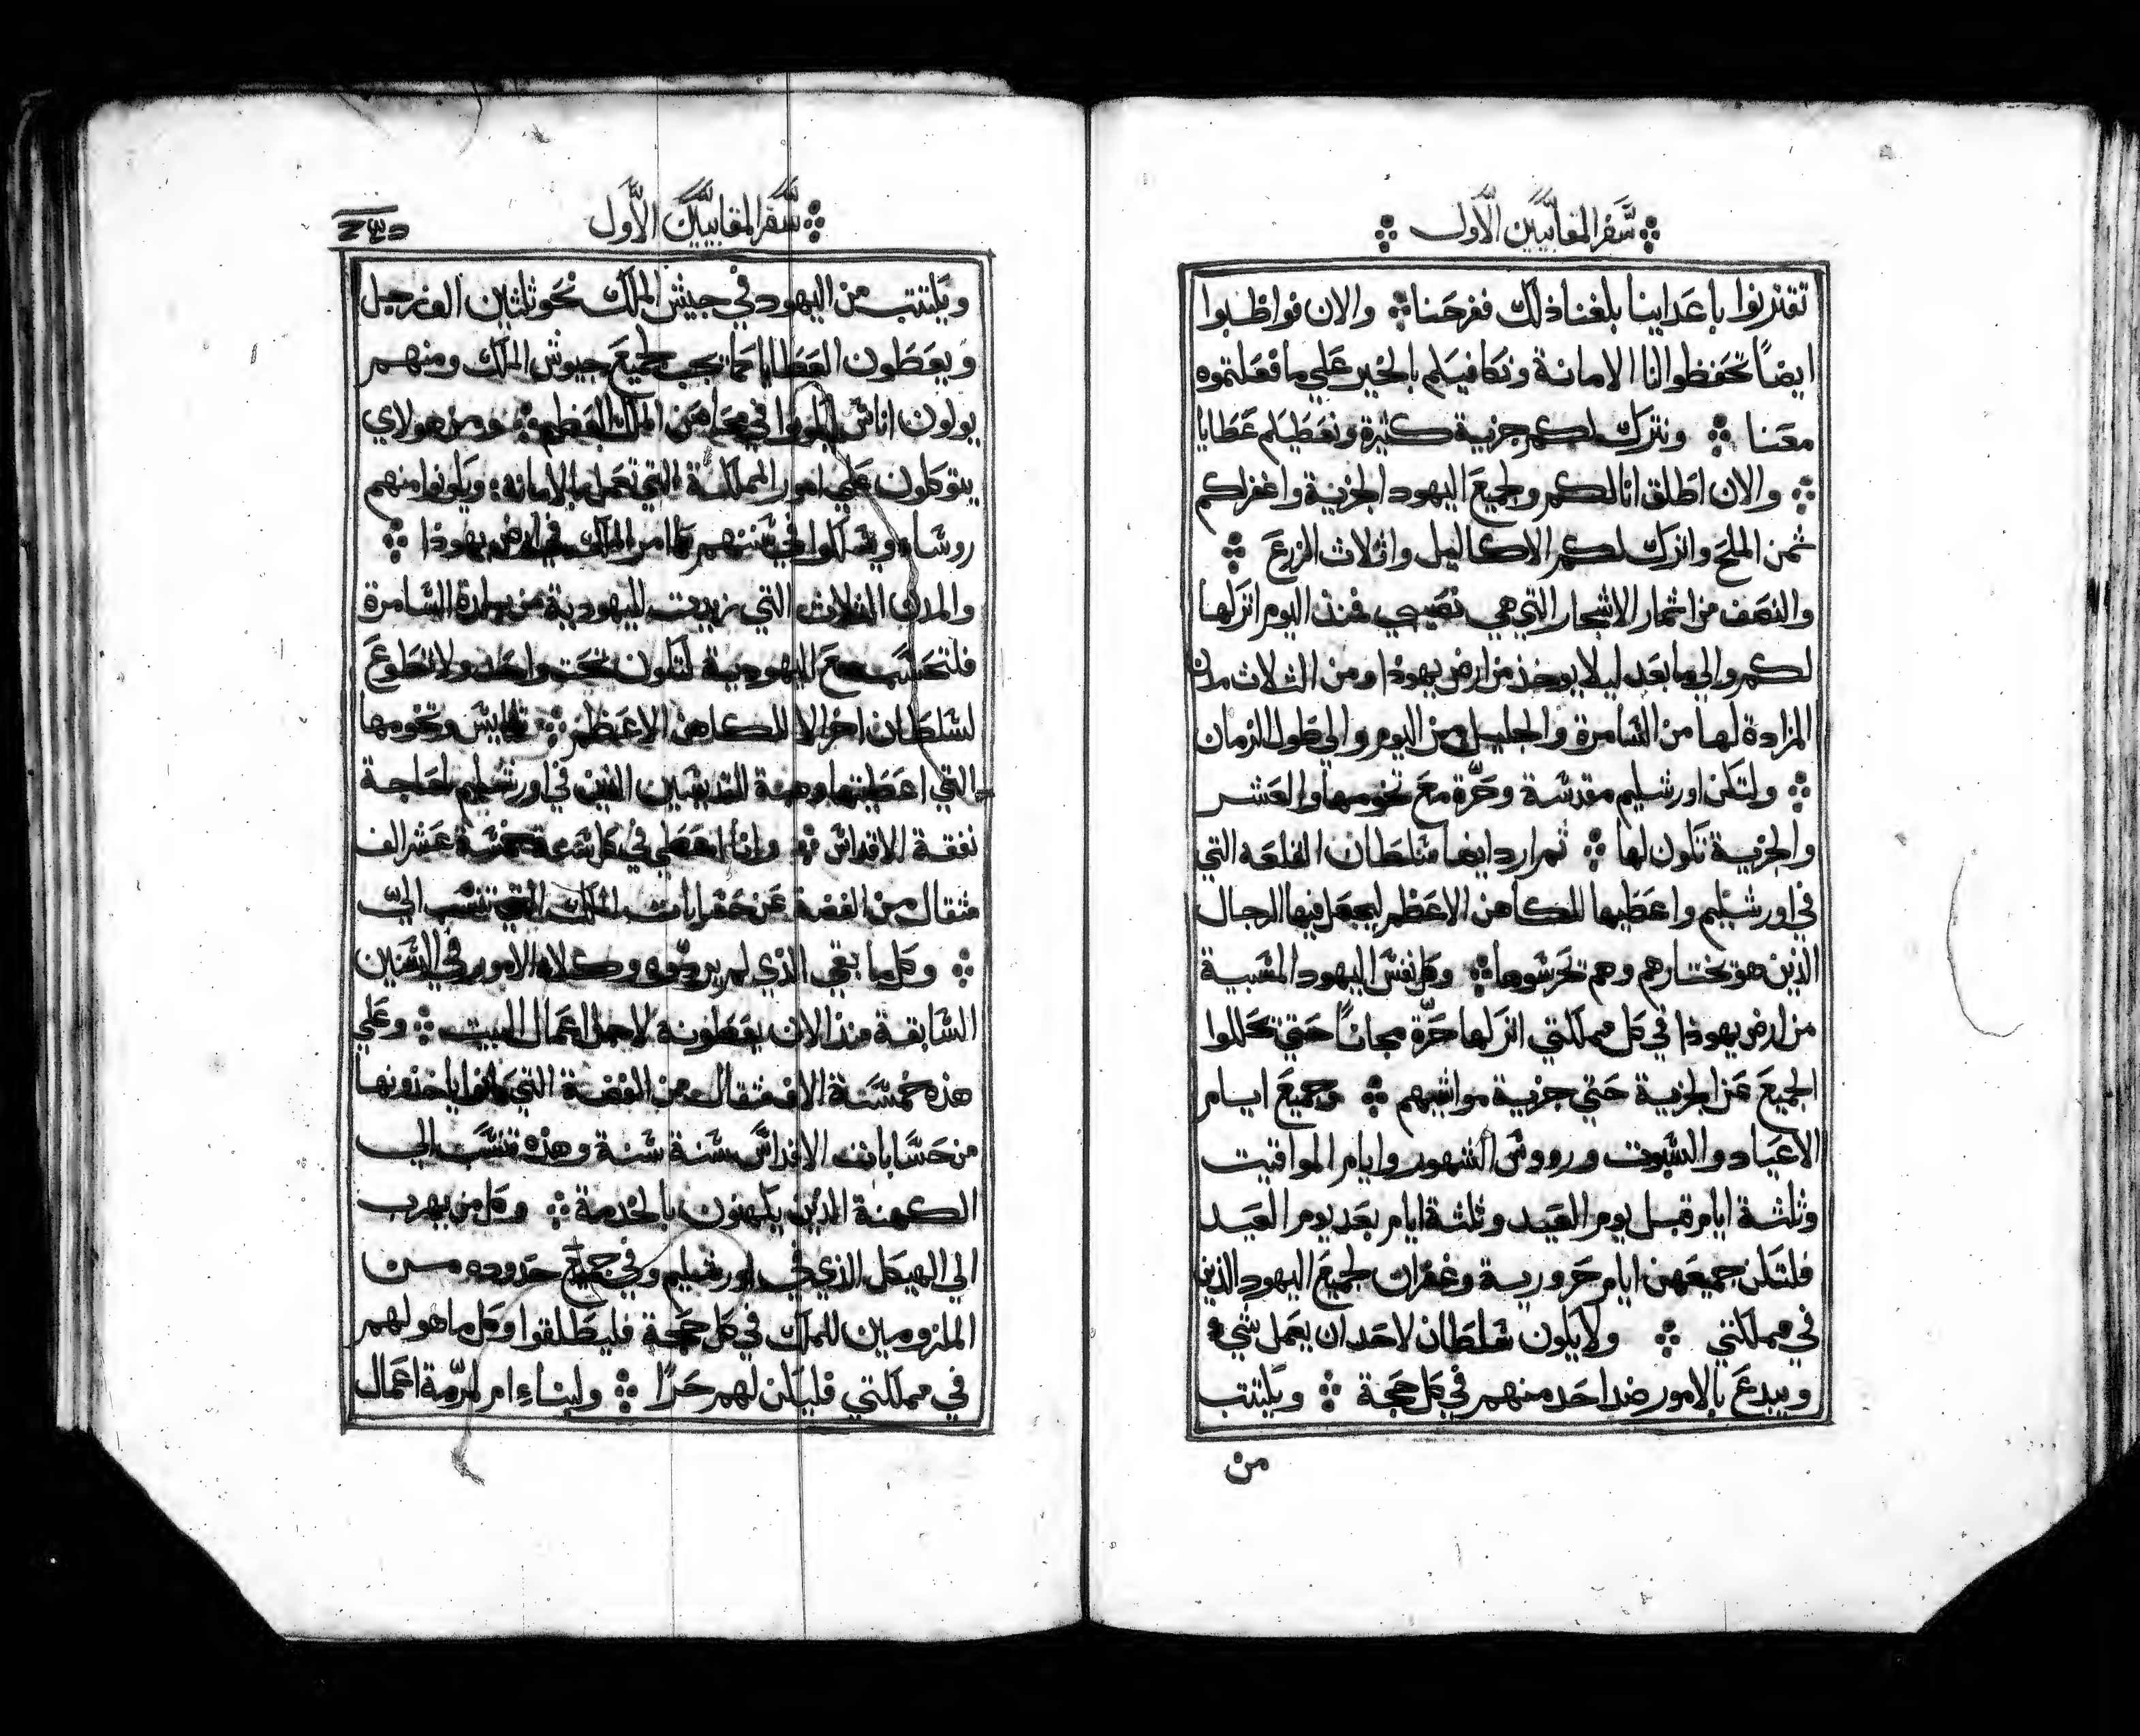 سفر المقابيين الاول
تقتربوا باعداينا بلغنا ذلك ففرحنا والان فواظبوا
ايضاً تحفظوا لنا الامانة ونكافيكم بالخير علي ما فعلتموه
معنا ونترك لكم جزية كثيرة ونعطيكم عطايا
والان اطلق انا لكم ولجميع اليهود الجزية واغفر لكم
ثمن الملح واترك لكم الاكاليل واثلاث الزرع
والنصف من اثمار الاشجار التي هي نصيبي فمنذ اليوم اتركها
لكم والي ما بعد ليلا يوخذ من ارض يهوذا ومن الثلاث مدن
المزادة لها من السامرة والجليل من اليوم والي طول الزمان
ولتكن اورشليم مقدسة وحرّة مع تخومها والعشر
والجزية تكون لها ثم ارد ايضا سلطان القلعه التي
في اورشليم واعطيها للكاهن الاعظم ليجعل فيها الرجال
الذين هو يختارهم وهم تحرسوها وكل نفس اليهود المسبية
من ارض يهوذا في كل مملكتي اتركها حرّة مجاناً حتي تحللوا
الجميع عن الجزية حتي جزية مواشيهم وجميع ايام
الاعياد والسبوت وروس الشهور وايام المواقيت
وثلثة ايام قبل يوم العيد وثلثة ايام بعد يوم العيد
فلتكن جميعهن ايام حرورية وغفران لجميع اليهود الذين
في مملكتي ولا يكون سلطان لاحد ان يعمل شيء
ويبدع بالامور ضد احد منهم في كل حجة ويكتتب
من
سفر المقابيين الاول
ويكتتب من اليهود في جيش الملك نحو ثلثين الف رجل
ويعطون العطايا كما تجب لجميع جيوش الملك ومنهم
يولون اناس ليكونوا في الملك العظيم ومن هولاي
يتوكلون علي امور المملكة التي تعمل بالامانه ويكونوا منهم
روسا ويسلكوا في سننهم كما امر الملك في ارض يهوذا
والمدن الثلاث التي زيدت لليهودية من بلدة السامرة
فلتحسب مع اليهودية لتكون تحت واحد ولا تطوع
لسلطان اخر الا للكاهن الاعظم وتخومها
التي اعطيتها وهبة القديسين الذين في اورشليم لحاجة
نفقة الاقداس وانا اعطي في كل سنة خمسة عشر الف
مثقال من الفضة عن الملك التي تنسب اليّ
وكل ما بقي الذي لم يردّوه وكلاء الامور في السنين
السابقة منذ الان يعطونه لاجل اعمال البيت وعلي
هذه خمسة الاف مثقال من الفضة التي كانوا ياخذونها
من حسابات الاقداس سنة سنة وهذه تنسب الي
الكهنة الذين يكهنون بالخدمة وكل من يهرب
الي الهيكل الذي في اورشليم وفي جميع حدوده من
الملزومين للملك في كل حجة فليطلقوا وكل ما هو لهم
في مملكتي فليكن لهم حرًا ولبناء ام لمرّمة اعمال